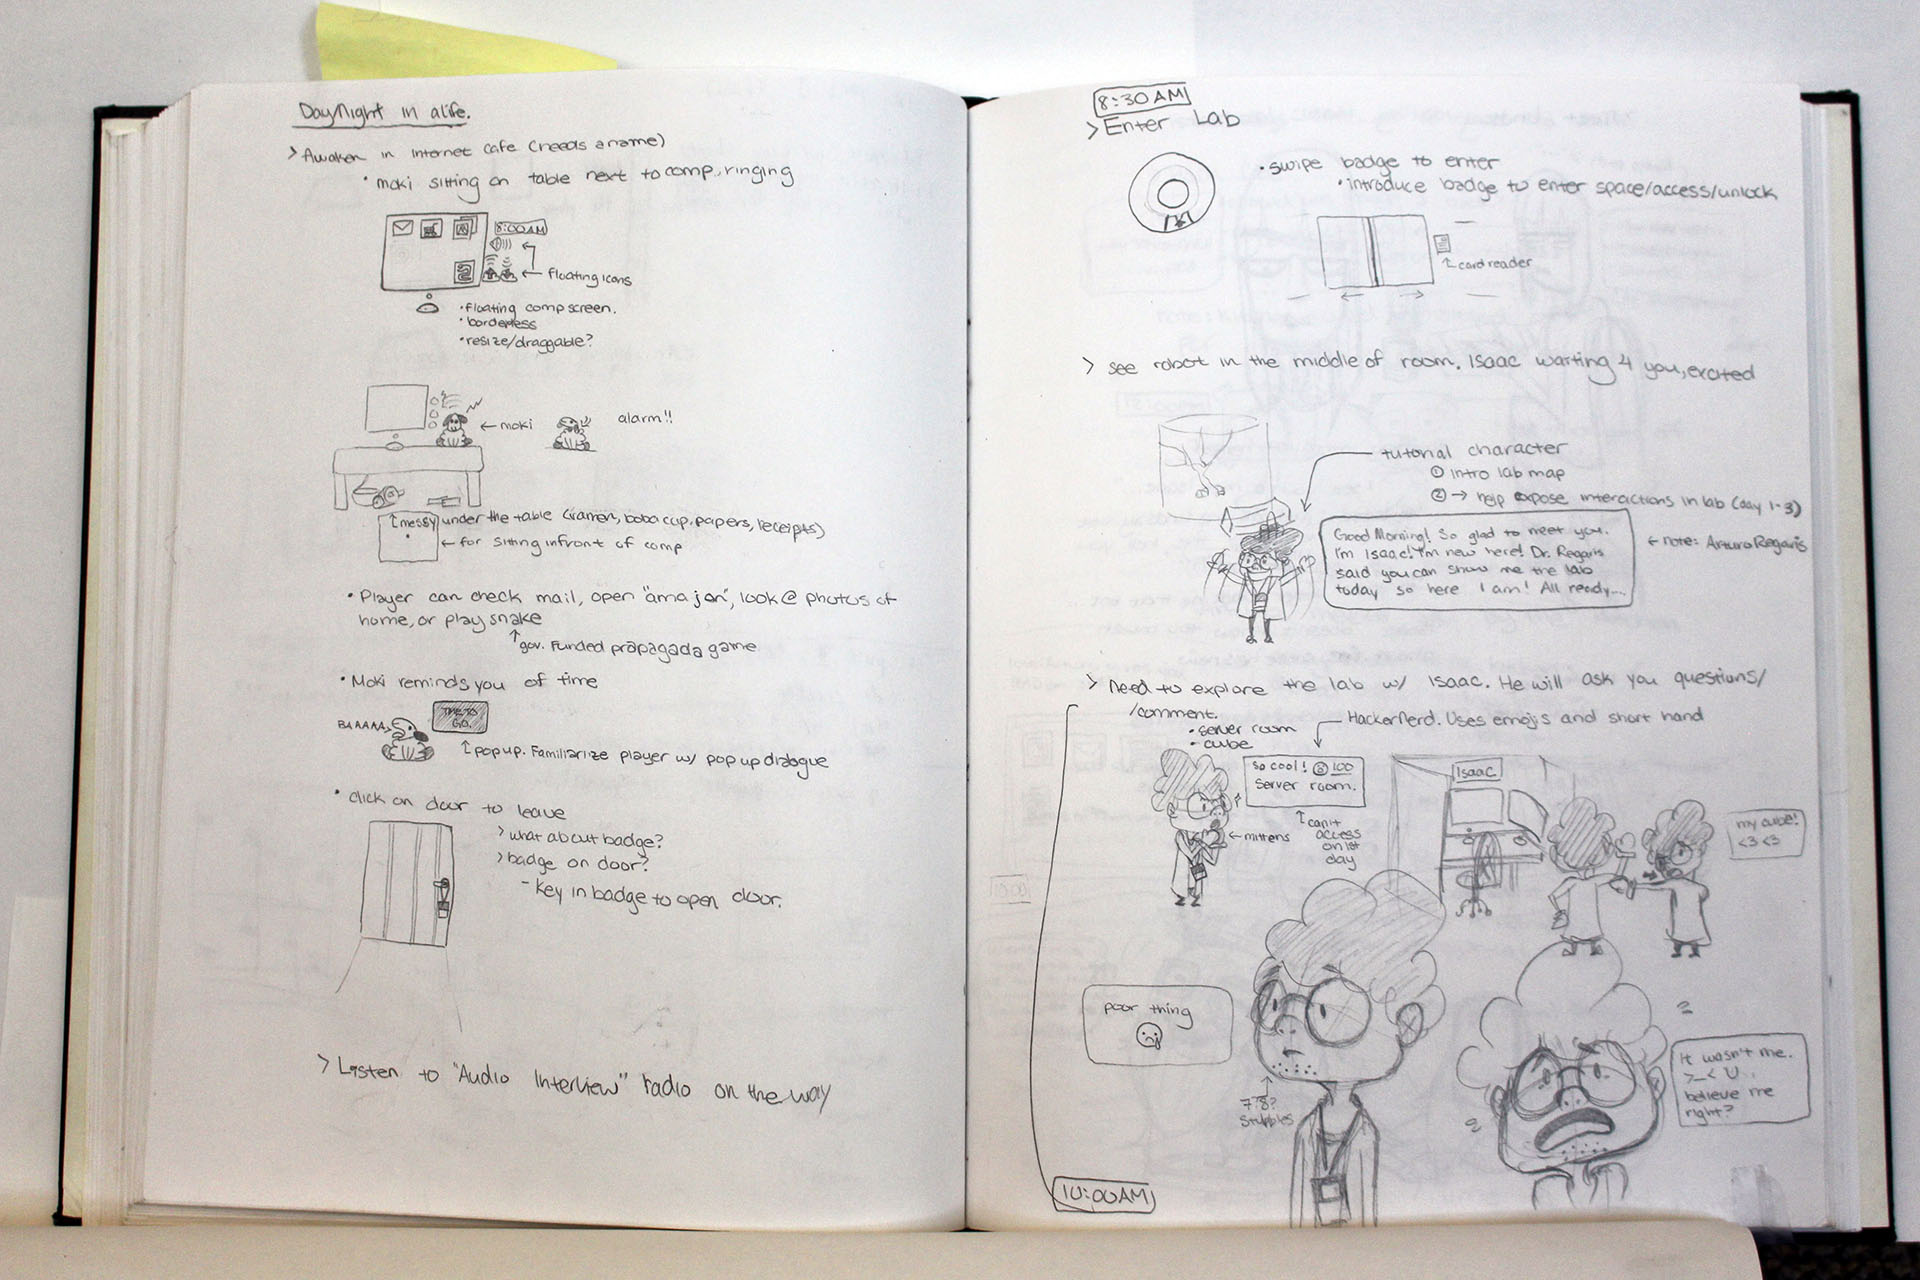 Day/Night in a life.
> Awaken in internet cafe (needs a name)
• moki sitting on table next to comp., ringing
8:00AM
← floating icons
• floating comp screen.
• borderless
• resize/draggable?
← moki
alarm!!
↑ messy under the table (ramen, boba cup, papers, receipts)
← for sitting infront of comp
• Player can check mail, open "amajon", look @ photos of
home, or play snake
↑ gov. funded propagada game
• Moki reminds you of time
BAAAAA
TIME TO
GO.
↑ pop up. Familiarize player w/ pop up dialogue
• click on door to leave
> what about badge?
> badge on door?
- key in badge to open door.
> Listen to "Audio Interview" radio on the way
8:30AM
> Enter Lab
• swipe badge to enter
• introduce badge to enter space/access/unlock
↑ card reader
> see robot in the middle of room. Isaac waiting 4 you, excited
tutorial character
① intro lab map
② → help expose interactions in lab (day 1-3)
Good Morning! So glad to meet you.
I'm Isaac! I'm new here! Dr. Regaris
said you can show me the lab
today so here I am! All ready....
← note: Arturo Regaris
> need to explore the lab w/ Isaac. He will ask you questions/
/comment.
• server room
• cube
Hackernerd. Uses emojis and short hand
so cool! 100
server room.
← mittens
↑ can't
access
on 1st
day
Isaac
my cube!
<3 <3
poor thing
7?8?
stubbles
It wasn't me.
>_< U...
believe me
right?
10:00AM